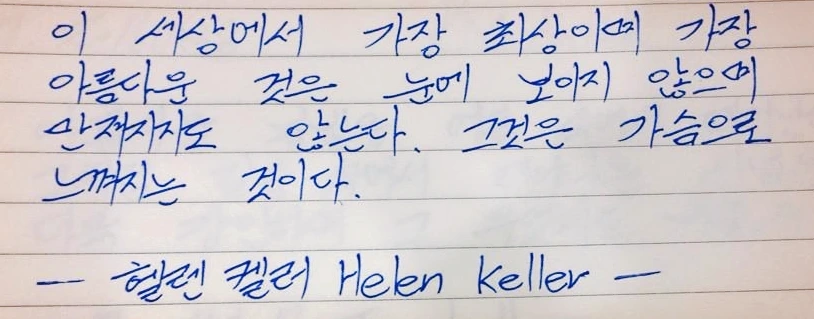 이 세상에서 가장 최상이며 가장
아름다운 것은 눈에 보이지 않으며
만져지지도 않는다. 그것은 가슴으로
느껴지는 것이다.
— 헬렌 켈러 Helen Keller —